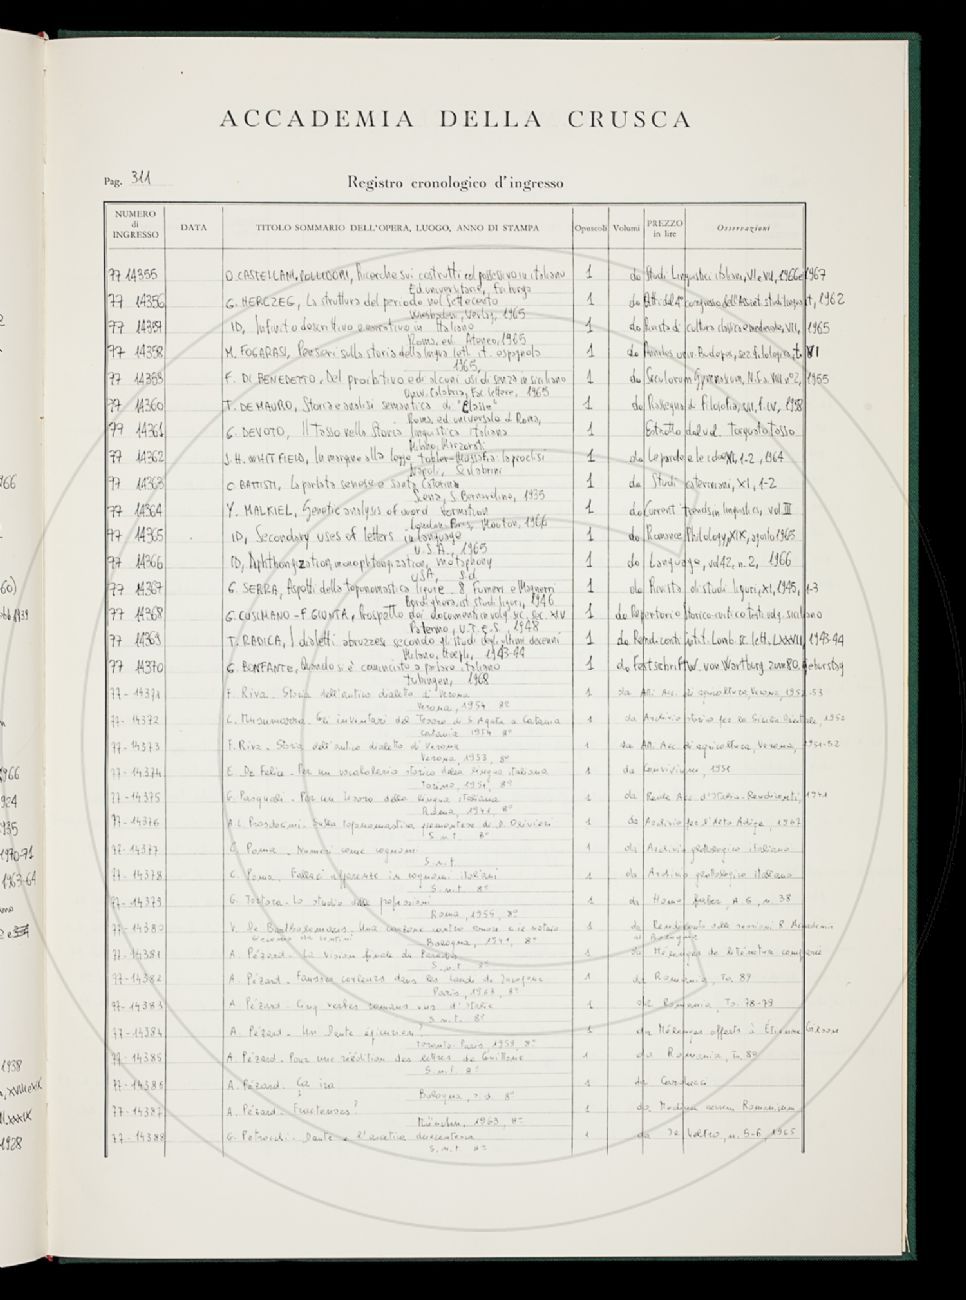 ACCADEMIA DELLA CRUSCA
Pag. 311
Registro cronologico d'ingresso
NUMERO di INGRESSO DATA TITOLO SOMMARIO DELL'OPERA, LUOGO, ANNO DI STAMPA Opuscoli Volumi PREZZO in lire Osservazioni
77 14355 O. CASTELLANI POLLIDORI, Ricerche sui costrutti col possessivo in italiano 1 da Studi Linguistici italiani, VI e VII, 1966 e 1967
Ed. universitarie, Friburgo
77 14356 G. HERCZEG, La struttura del periodo nel Settecento 1 da Atti del 4° congresso dell'Assoc. 1962
Wiesbaden, Verlag, 1965
77 14357 ID, Infinito descrittivo e narrativo in Italiano 1 da Rivista di cultura classica e medioevale, VII, 1965
Roma, ed. Ateneo, 1965
77 14358 M. FOGARASI, Pensieri sulla storia della lingua lett. it. 1 da Annales univ. Budapest, sez. filologica, t. VI
1965
77 14359 F. DI BENEDETTO, Del proibitivo e di alcuni usi di senza in siciliano 1 da Siculorum Gymnasium, N.S. a. VIII n° 2, 1955
Univ. Catania, Fac. lettere, 1965
77 14360 T. DE MAURO, Storia e analisi semantica di "Classe" 1 da Rassegna di Filosofia, VII, 1-IV, 1958
Roma, ed. universale di Roma,
77 14361 G. DEVOTO, Il Tasso nella Storia linguistica italiana 1 Estratto dal vol. Torquato Tasso
Milano, Marzorati
77 14362 J.H. WHITFIELD, In margine alla legge Tobler-Mussafia: la proclisi 1 da Le parole e le idee VI, 1-2, 1964
Napoli,
77 14363 C. BATTISTI, La parlata senese e Santa Caterina 1 da Studi cateriniani, XI, 1-2
Siena, S. Bernardino, 1935
77 14364 Y. MALKIEL, Genetic analysis of word formation 1 da Current trends in linguistics, vol. III
London-Paris, Mouton, 1966
77 14365 ID, Secondary uses of letters in language 1 da Romance Philology, XIX, agosto 1965
U.S.A., 1965
77 14366 ID, Diphthongization, monophthongization, metaphony 1 da Language, vol 42, n. 2, 1966
USA, s.d.
77 14367 G. SERRA, Aspetti della toponomastica ligure. 1 da Rivista di studi liguri, XI, 1945, 1-3
Bordighera, ist. studi liguri, 1946
77 14368 G. CUSIMANO - F. GIUNTA, Prospetto dei documenti in volg. sic. sec. XIV 1 da Repertorio storico-critico testi volg. siciliano
Palermo, U.T.E.S. 1948
77 14369 T. RADICA, I dialetti abruzzesi secondo gli studi degli ultimi decenni 1 da Rendiconti istit. Lomb. sc. lett. LXXVII, 1943-44
Milano, Hoepli, 1943-44
77 14370 G. BONFANTE, Quando si è cominciato a parlare italiano 1 da Festschrift W. von Wartburg zum 80. Geburtstag
Tübingen, 1968
77-14371 F. Riva. Storia dell'antico dialetto di Verona 1 da Atti Acc. di agricoltura, Verona, 1952-53
Verona, 1954 8°
77-14372 C. Musumarra. Gli inventari del Tesoro di S. Agata a Catania 1 da Archivio storico per la Sicilia Orientale, 1952
Catania 1954 8°
77-14373 F. Riva - Storia dell'antico dialetto di Verona 1 da Atti Acc. di agricoltura, Verona, 1951-52
Verona, 1953, 8°
77-14374 E. De Felice - Per un vocabolario storico della lingua italiana 1 da Convivium, 1951
Torino, 1951, 8°
77-14375 G. Pasquali - Per un tesoro della lingua italiana 1 da Reale Acc. d'Italia - Rendiconti, 1941
Roma, 1941, 8°
77-14376 A.L. Prosdocimi - Sulla toponomastica piemontese di D. Olivieri 1 da Archivio per l'Alto Adige, 1967
S.n.t. 8°
77-14377 C. Poma - Numeri come cognomi 1 da Archivio glottologico italiano
S.n.t.
77-14378 C. Poma. Fallaci apparenze in cognomi italiani 1 da Archivio glottologico italiano
S.n.t. 8°
77-14379 G. Tortora - Lo studio delle professioni 1 da Homo faber, A. 6, n. 38
Roma, 1955, 8°
77-14380 V. De Bartholomaeis. Una canzone contro amore e il notaio Giacomo da Lentini 1 da Rendiconto delle sessioni R. Accademia di Bologna
Bologna, 1941, 8°
77-14381 A. Pézard - La vision finale du Paradis 1 da Mélanges de littérature comparée
S.n.t. 8°
77-14382 A. Pézard - Fausses couleurs dans les 1 da Romania, To. 89
Paris, 1968, 8°
77-14383 A. Pézard - Cinq vestes romans d'Italie 1 da Romania, To. 78-79
S.n.t. 8°
77-14384 A. Pézard - Un Dante épicurien? 1 da Mélanges offerts à Étienne Gilson
Toronto-Paris, 1959, 8°
77-14385 A. Pézard - Pour une réédition des lettres de Guittone 1 da Romania, To. 89
S.n.t. 8°
77-14386 A. Pézard - Ça ira 1 da Carducci
Bologna, s.d. 8°
77-14387 A. Pézard - 1 da Medium aevum Romanicum
München, 1963, 8°
77-14388 G. Petrocchi - Dante e l'ascetica duecentesca 1 da Il Veltro, n. 5-6, 1965
S.n.t. 8°